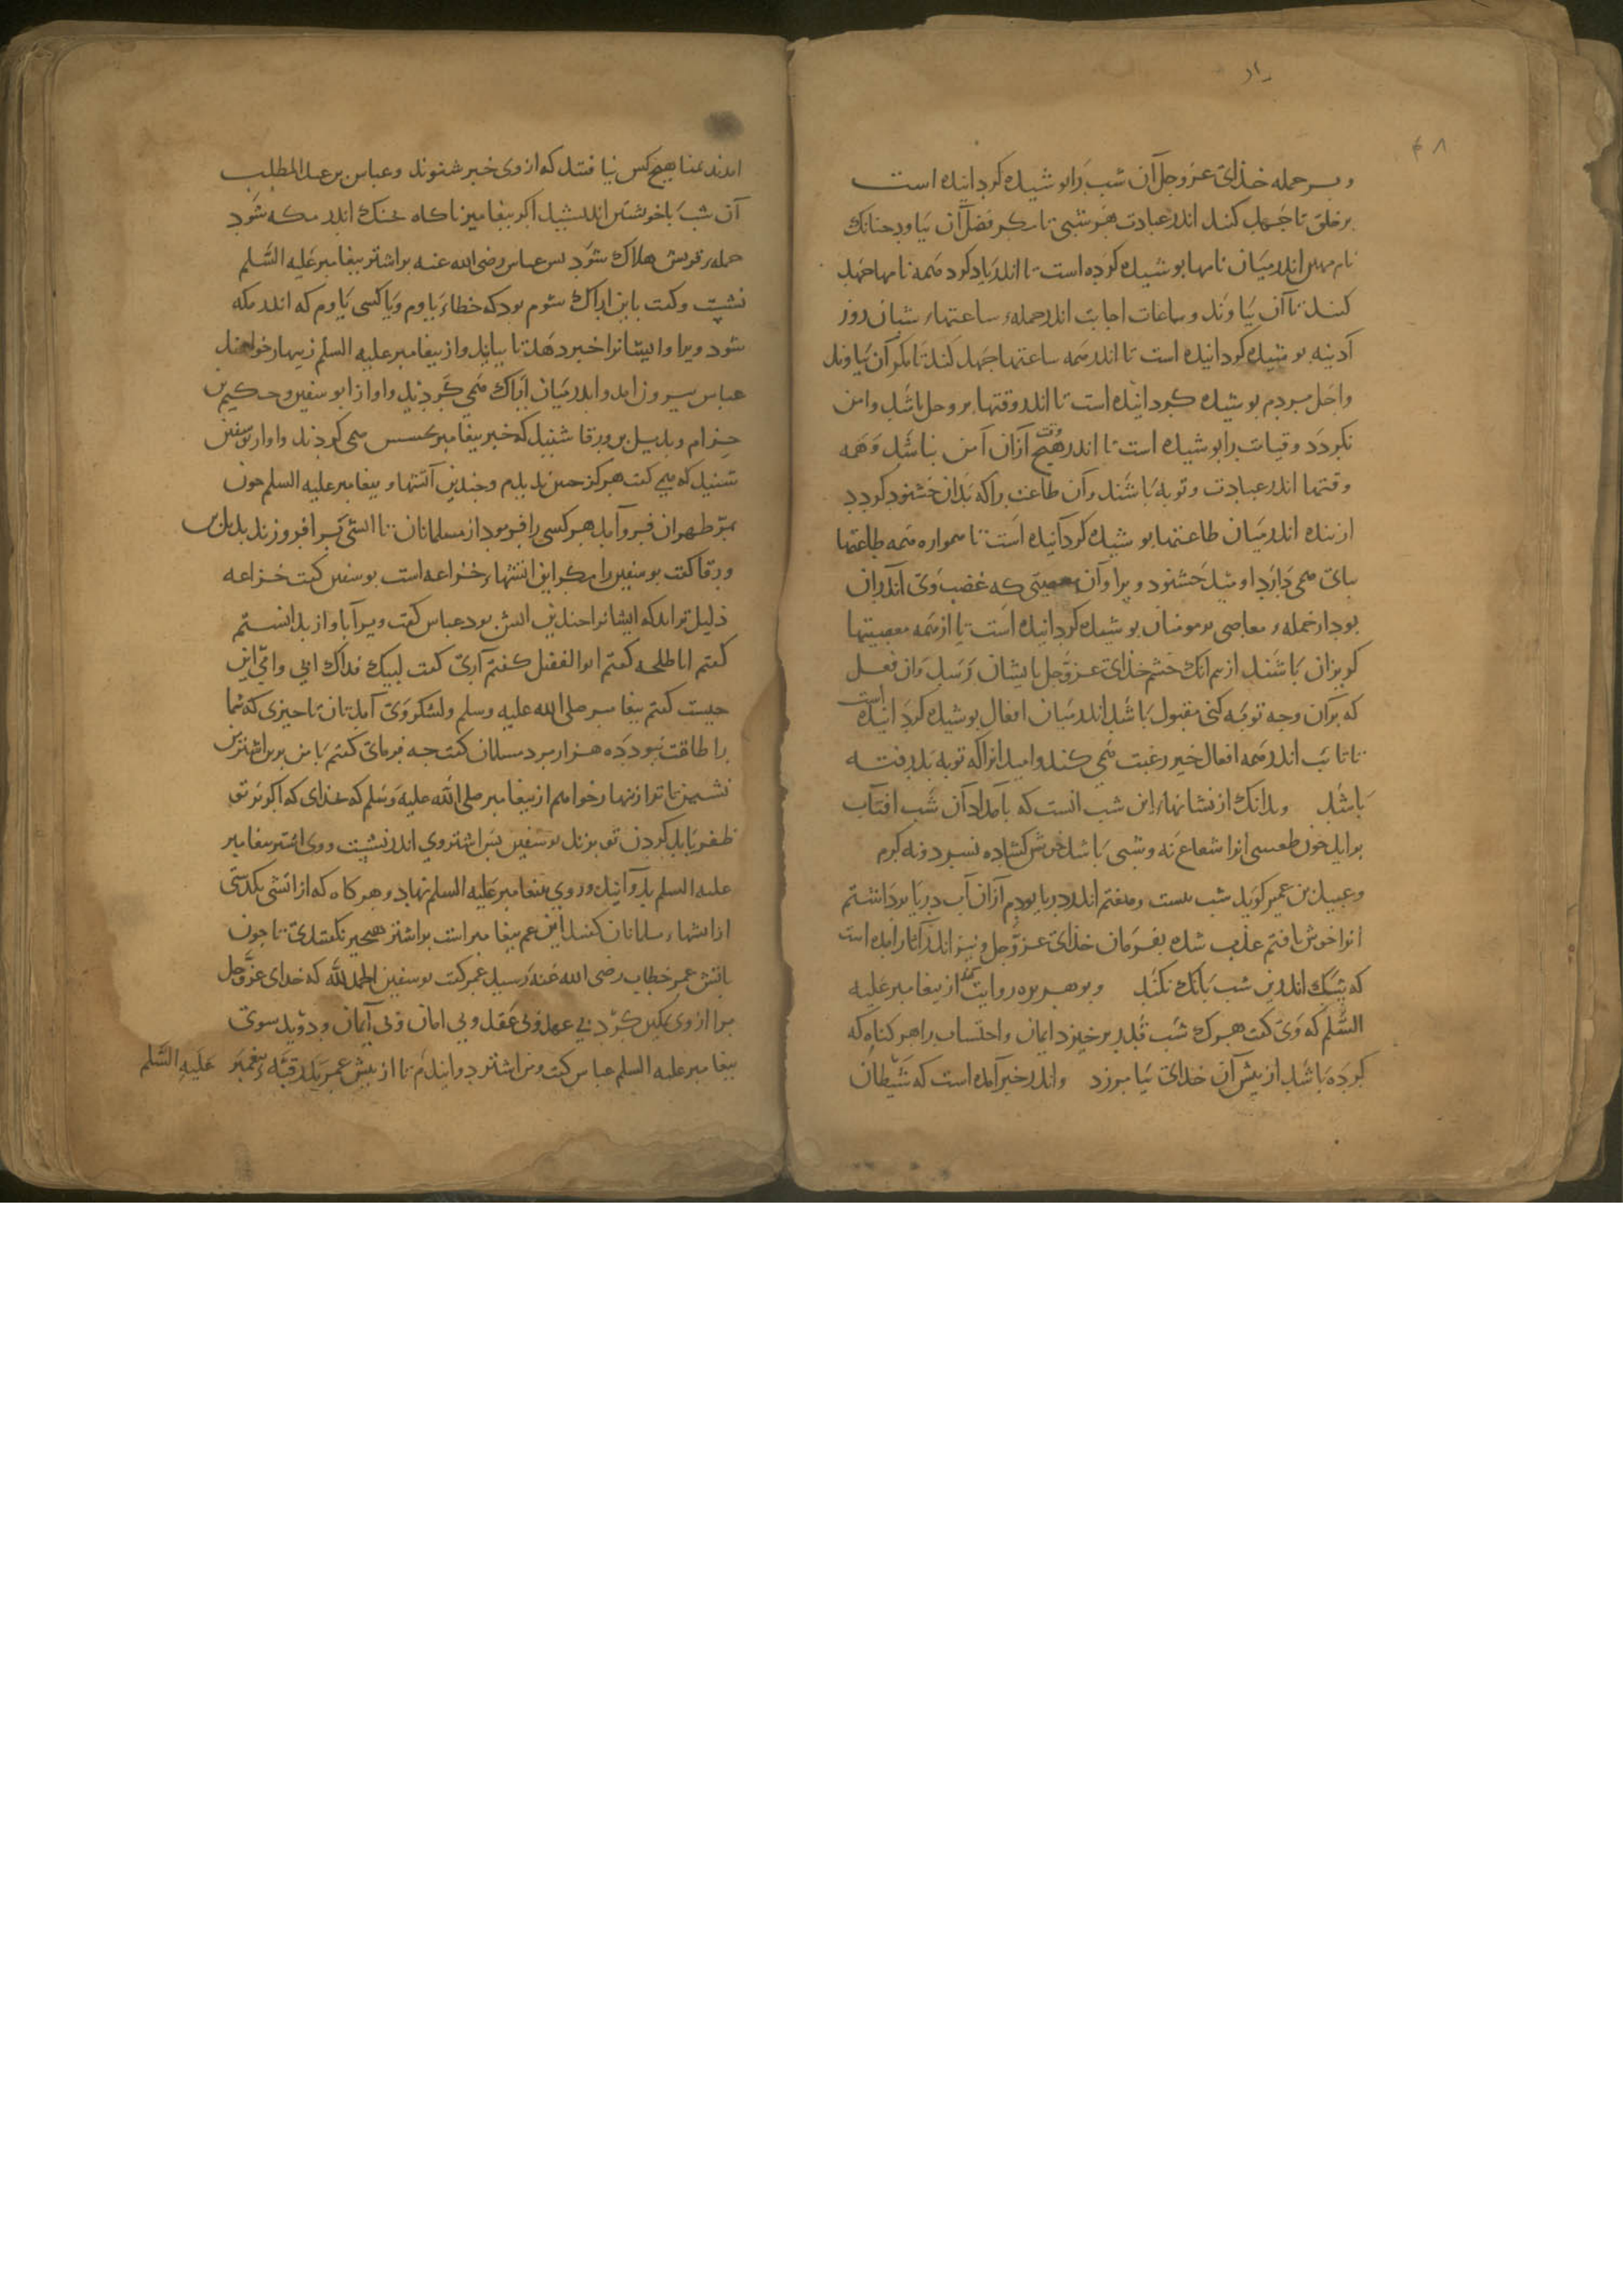 و بر جمله خذای عز و جل آن شب را بوشیده کردانیده است
بر خلق تا جهد کنند اندر عبادت هر شبی تا مکر فضل آن بیاوند جنانک
نام مهین اندر میان نامها بوشیده کرده است تا اندر یاد کرد همه نامها جهد
کنند تا آن بیاوند و ساعات اجابت اندر جملهٔ ساعتهاء شبان روز
آدینه بوشیده کردانیده است تا اندر همه ساعتها جهد کنند تا مکر آن بیاوند
و اجل مردم بوشیده کردانیده است تا اندر وقتها بر وجل باشد و امن
نکردد و قیامت را بوشیده است تا اندر هیج وقت ازان آمن نباشد و همه
وقتها اندر عبادت و توبه باشند و آن طاعت را که بذان خشنود کردد
از بنده اندر میان طاعتها بوشیده کردانیده است تا همواره همه طاعتها
بجای همی دارد اومید خشنودی ورا و آن معصیتی که غضب وی اندران
بود از جملهٔ معاصی بر مومنان بوشیده کردانیده است تا از همه معصیتها
کریزان باشند از بیم انک خشم خذای عز و جل بایشان رسد و آن فعل
که بران وجه توبه کنی مقبول باشد اندر میان افعال بوشیده کردانیده است
تا تائب اندر همه افعال خیر رغبت همی کند و امید انرا که توبه بذرفته
باشد و بدانک از نشانهاء این شب انست که بامداد آن شب افتاب
برآید جون طسی انرا شعاع نه و شبی باشد خوش کشاده نسرد و نه کرم
و عبید بن عمیر کوید شب بیست و هفتم اندر دریا بودم ازان آب دریا برداشتم
انرا خوش یافتم عذب شده بفرمان خذای عز و جل و نیز اندر آثار آمده است
که سک اندرین شب بانک نکند و بو هریره روایت کند از بیغامبر علیه
السلم که وی کفت هرک شب قدر برخیزد ایمان و احتساب را هر کناه که
کرده باشد از بیش آن خدای بیامرزد و اندر خبر آمده است که شیطان
امدند عمنا هیج کس نیافتند که از وی خبر شنوند و عباس بن عبد المطلب
آن شب با خویشتن اندیشید اکر بیغامبر ناکاه بجنک اندر مکه شود
جملهٔ قریش هلاک شود بس عباس رضی الله عنه بر اشتر بیغامبر علیه السلم
نشست و کفت باین اراک شوم بود که خطاء یاوم و یا کسی یاوم که اندر مکه
شود و ایشانرا خبر دهد تا بیایند و از بیغامبر علیه السلم زینهار خواهند
عباس بیرون امد و اندر میان اراک همی کردید و اواز ابو سفین و حکیم بن
حزام و بدیل بن ورقا شنید که خبر بیغامبر تجسس همی کردند و اواز بو سفین
شنید که می کفت هرکز جنین ندیدم و جندین آتشها و بیغامبر علیه السلم جون
بمر ظهران فروآمد هر کسی را فرمود از مسلمانان تا اتشی برافروزند بدیل بن
ورقا کفت بو سفین را مکر این اتشهاء خزاعه است بو سفین کفت خزاعه
ذلیل تراند که ایشانرا جندین اتش بود عباس کفت ویرا بآواز بدانستم
کفتم ابا حنظله کفتم ابو الفضل کفتم آری کفت لبیک فداک ابی و امی این
جیست کفتم بیغامبر صلی الله علیه و سلم و لشکر وی آمدتان تا جیزی که شما
را طاقت نبود ده هزار مرد مسلمان کفت جه فرمای کفتم با من برین اشتر
نشین تا ترا زینهار خواهم از بیغامبر صلی الله علیه و سلم که بخدای که اکر بر تو
ظفر یابد کردن تو بزند بو سفین بس اشتر وی اندر نشست و وی اشتر بیغامبر
علیه السلم بدوانید و روی ببیغامبر علیه السلم نهاد و هر کاه که از اتشی بکذشتی
از اتشهاء مسلمانان کفتند این عم بیغامبر است بر اشتر هیج جیز نکفتندی تا جون
باتش عمر خطاب رضی الله عنه رسید عمر کفت بو سفین الحمد لله که خدای عز و جل
مرا از وی تمکین کرد بی عهد و بی عقد و بی امان و بی ایمان و دوید سوی
بیغامبر علیه السلم عباس کفت و من اشتر دوانیدم تا از بیش عمر بدر قبهٔ بیغمبر علیه السلم